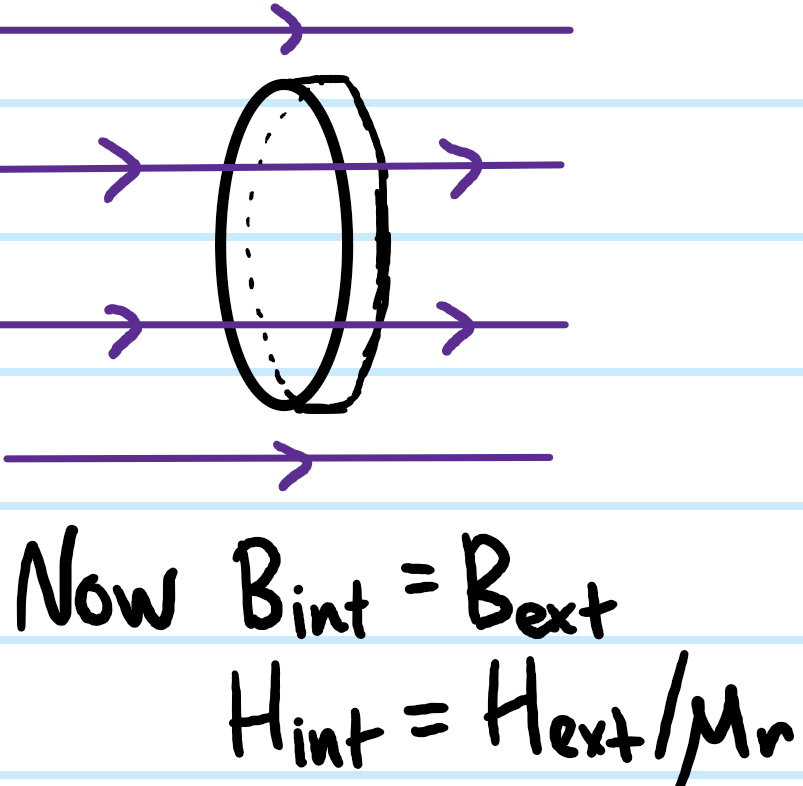 Now B_int = B_ext
H_int = H_ext/μ_r